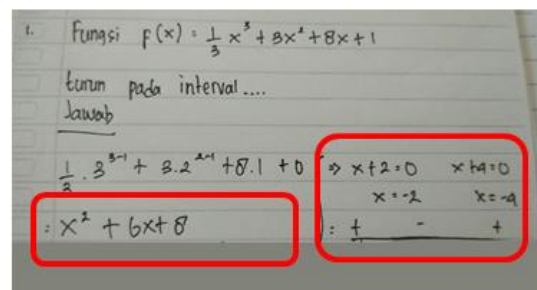 1. Fungsi F(x) = 1/3 x³ + 3x² + 8x + 1
turun pada interval....
Jawab
1/3 . 3³⁻¹ + 3.2²⁻¹ + 8.1 + 0 ⇒ x+2=0 x+4=0
x=-2 x=-4
= x² + 6x + 8 ) : + - +